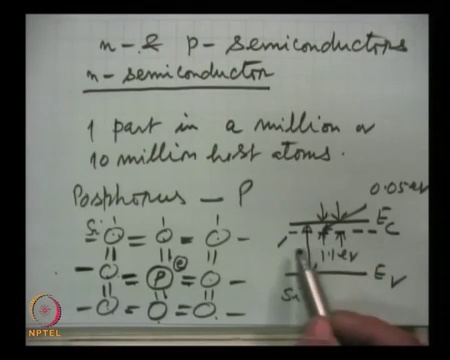 n- & p- semiconductors
n- semiconductor
1 part in a million or
10 million host atoms.
Posphorus - P
0.05 eV
Si
E_C
e
1.1 eV
P
E_V
Si
NPTEL